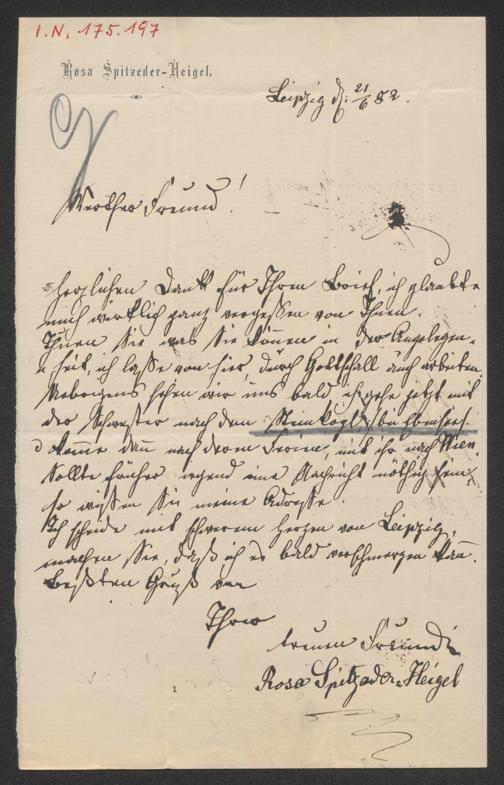 I.N. 175.197
Rosa Spitzeder-Heigel.
Leipzig d. 21/6 82.
Werther Freund!
Herzlichen Dank für Ihren Brief, ich glaubte
mich wirklich ganz vergessen von Ihnen.
Thuen Sie was Sie können in der Angelegen-
heit, ich lasse von hier, durch Gottschall auch arbeiten.
Uebrigens sehen wir uns bald, ich gehe jetzt mit
der Schwester nach dem Steinkogl bei Ebensee
komme dann nach deren Ferien, mit ihr nach Wien.
Sollte früher irgend eine Nachricht nöthig sein,
so wissen Sie meine Adresse.
Ich scheide mit schwerem Herzen von Leipzig,
machen Sie, daß ich es bald verschmerzen kann.
Besten Gruß von
Ihrer
treuen Freundin
Rosa Spitzeder-Heigel